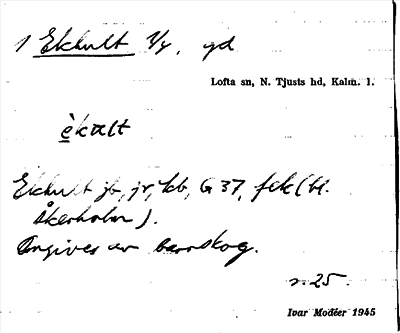 1 Ekhult 1/4, gd
Lofta sn, N. Tjusts hd, Kalm. l.
èkɑlt
Ekhult jb, jr, kb, G 37, fek (bl.
åkerholm).
Omgives av barrskog.
n. 25.
Ivar Modéer 1945